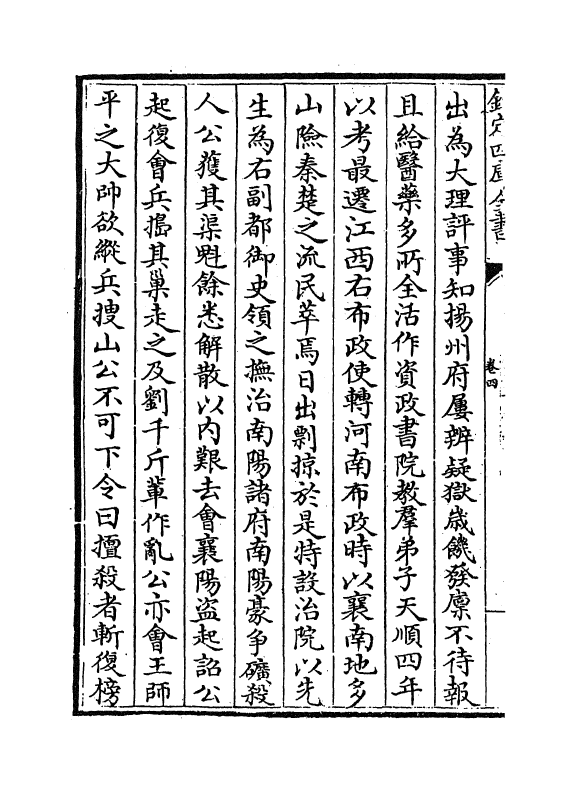 欽定四庫全書
卷四
出為大理評事知揚州府屢辨疑獄歲饑發廪不待報
且給醫藥多所全活作資政書院教羣弟子天順四年
以考最遷江西右布政使轉河南布政時以襄南地多
山險秦楚之流民萃焉日出剽掠於是特設治院以先
生為右副都御史領之撫治南陽諸府南陽豪争礦殺
人公獲其渠魁餘悉解散以内艱去會襄陽盗起詔公
起復會兵搗其巢走之及劉千斤軰作亂公亦會王師
平之大帥欲縱兵捜山公不可下令曰擅殺者斬復榜